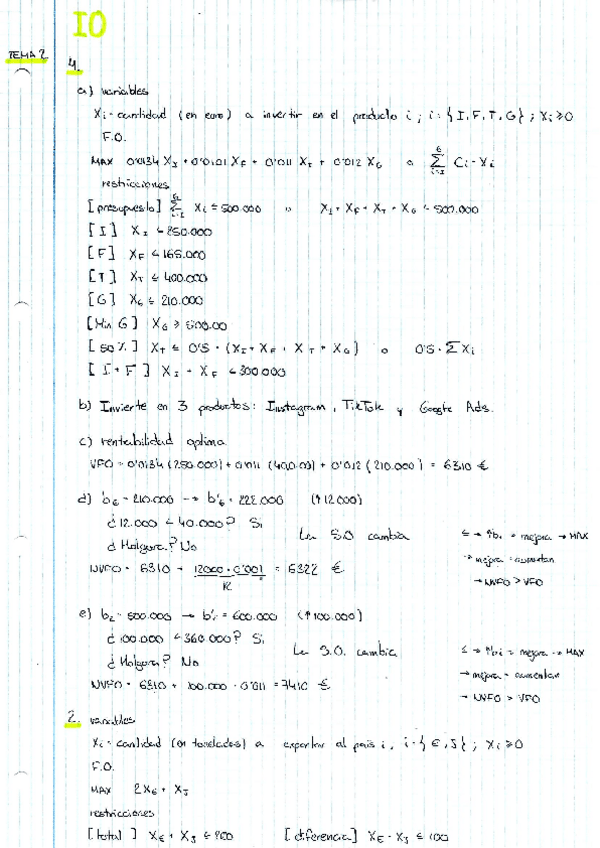 IO
TEMA 2
4.
a) variables
Xi = cantidad (en euro) a invertir en el producto i ; i = { I, F, T, G } ; Xi ≥ 0
F.O.
MAX 0'0134 XI + 0'0101 XF + 0'011 XT + 0'012 XG o Σ Ci · Xi
restricciones
[presupuesto] Σ Xi ≤ 500.000 XI + XF + XT + XG ≤ 500.000
[I] XI ≤ 250.000
[F] XF ≤ 165.000
[T] XT ≤ 400.000
[G] XG ≤ 210.000
[Min G] XG ≥
[50%] XT ≤ 0'5 · (XI + XF + XT + XG) o 0'5 · Σ Xi
[I + F] XI + XF ≤ 300.000
b) Invierte en 3 productos: Instagram, TikTok y Google Ads.
c) rentabilidad optima
VFO = 0'0134 (250.000) + 0'011 (40.000) + 0'012 (210.000) = 6310 €
d) b6 = 210.000 → b'6 = 222.000 (↑12.000)
¿12.000 < 40.000? Si
¿Holgura? No
La S.O. cambia
NVFO = 6310 + 12000 · 0'001 = 6322 €
≤ → ↑bi = mejora → MAX
→ mejora = aumentar
→ NVFO > VFO
e) = 500.000 → = 600.000 (↑100.000)
¿100.000 < 360.000? Si
¿Holgura? No
La S.O. cambia
NVFO = 6310 + 100.000 · 0'011 = 7410 €
≤ → ↑bi = mejora → MAX
→ mejora = aumentar
→ NVFO > VFO
2. variables
Xi = cantidad (en toneladas) a exportar al país i, i = { E, J } ; Xi ≥ 0
F.O.
MAX 2XE + XJ
restricciones
[total] XE + XJ ≤ [diferencia] XE - XJ ≤ 100